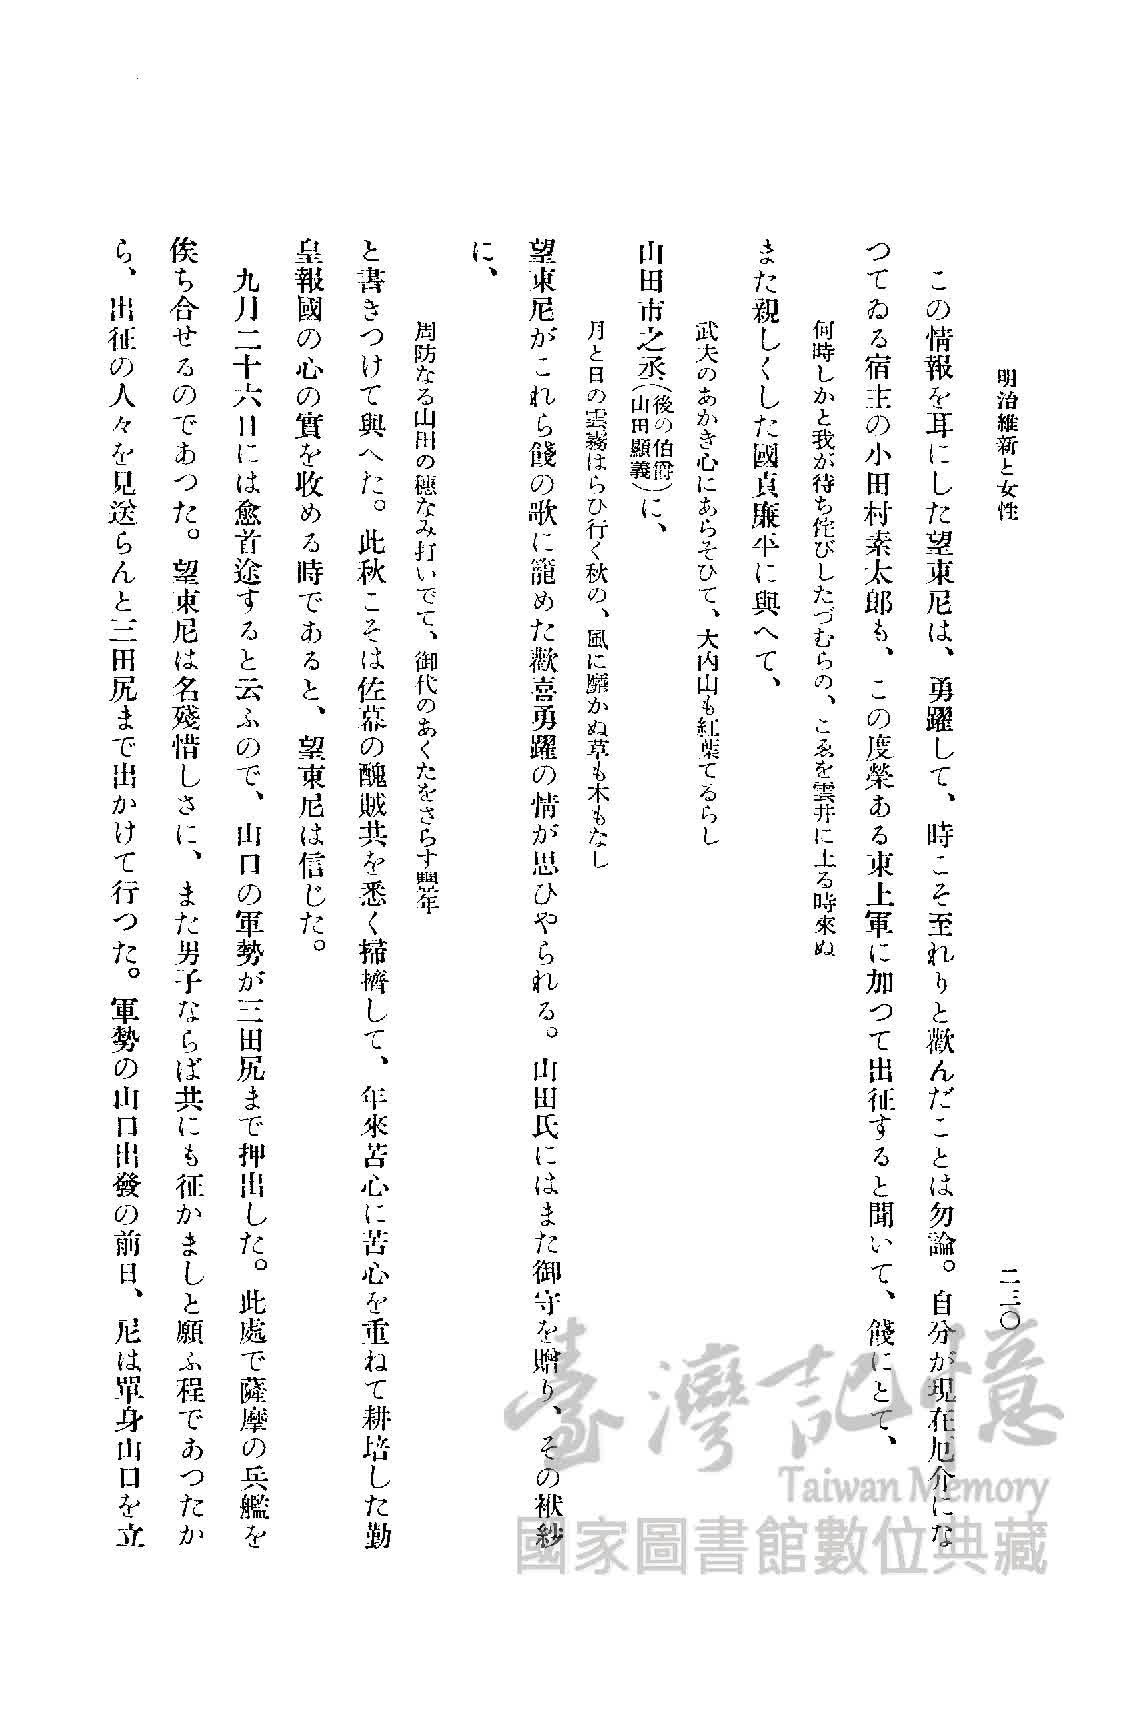 明治維新と女性
二三〇
この情報を耳にした望東尼は、勇躍して、時こそ至れりと歡んだことは勿論。自分が現在厄介にな
つてゐる宿主の小田村素太郎も、この度榮ある東上軍に加つて出征すると聞いて、餞にとて、
何時しかと我が待ち侘びしたづむらの、こゑを雲井に上る時來ぬ
また親しくした國貞廉平に與へて、
武夫のあかき心にあらそひて、大内山も紅葉てるらし
山田市之丞(後の伯爵山田顯義)に、
月と日の雲霧はらひ行く秋の、風に靡かぬ草も木もなし
望東尼がこれら餞の歌に籠めた歡喜勇躍の情が思ひやられる。山田氏にはまた御守を贈り、その袱紗
に、
周防なる山田の穗なみ打いでて、御代のあくたをさらす豐年
と書きつけて與へた。此秋こそは佐幕の醜賊共を悉く掃擠して、年來苦心に苦心を重ねて耕培した勤
皇報國の心の實を收める時であると、望東尼は信じた。
九月二十六日には愈首途すると云ふので、山口の軍勢が三田尻まで押出した。此處で薩摩の兵艦を
俟ち合せるのであつた。望東尼は名殘惜しさに、また男子ならば共にも征かましと願ふ程であつたか
ら、出征の人々を見送らんと三田尻まで出かけて行つた。軍勢の山口出發の前日、尼は單身山口を立
臺灣記憶
Taiwan Memory
國家圖書館數位典藏